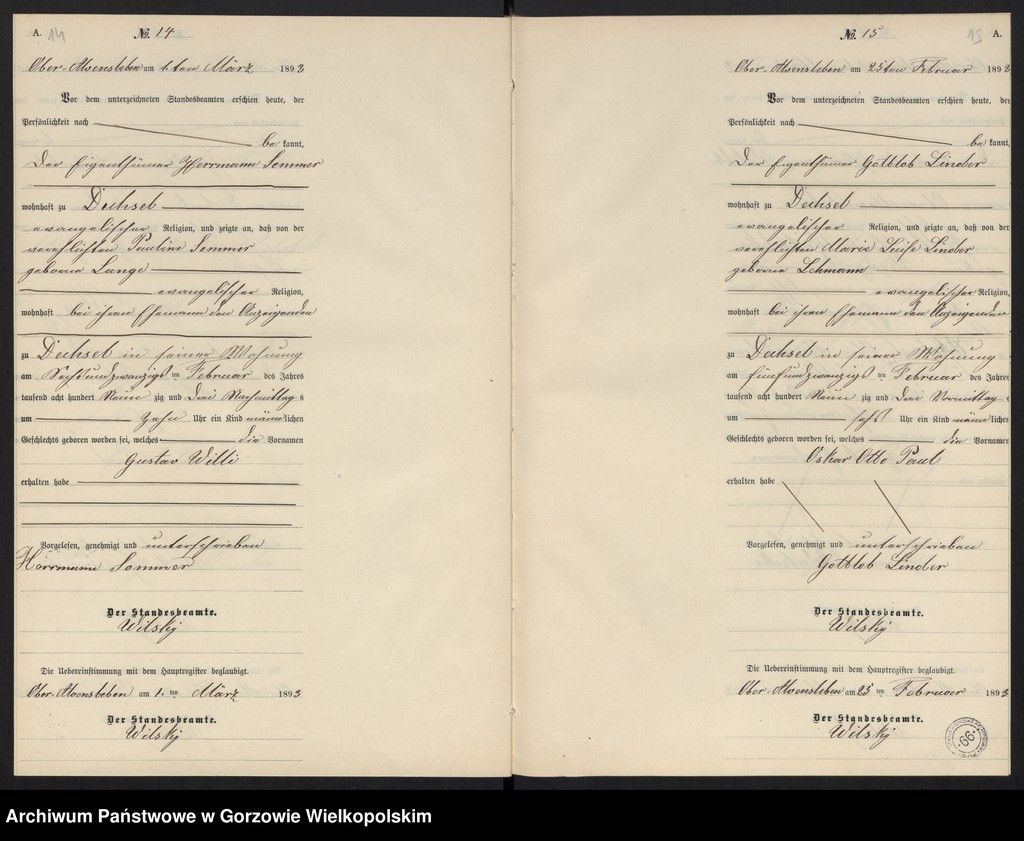 A. 14
No. 14
Ober-Alvensleben am 1. ten März 1893
Vor dem unterzeichneten Standesbeamten erschien heute, der
Persönlichkeit nach
be kannt,
Der Eigenthümer Herrmann Sommer
wohnhaft zu Dechsel
evangelischer Religion, und zeigte an, daß von der
verehlichten Pauline Sommer
geborne Lange
evangelischer Religion,
wohnhaft bei ihren Ehemann den Anzeigenden
zu Dechsel in seiner Wohnung
am Sechsundzwanzigst ten Februar des Jahres
tausend acht hundert Neun zig und Drei Nachmittags
um Zehn Uhr ein Kind männlichen
Geschlechts geboren worden sei, welches die Vornamen
Gustav Willi
erhalten habe
Vorgelesen, genehmigt und unterschrieben
Herrmann Sommer
Der Standesbeamte.
Wilsky
Die Uebereinstimmung mit dem Hauptregister beglaubigt.
Ober-Alvensleben am 1. ten März 1893
Der Standesbeamte.
Wilsky
No. 15
15 A.
Ober-Alvensleben am 25ten Februar 1893
Vor dem unterzeichneten Standesbeamten erschien heute, der
Persönlichkeit nach
be kannt,
Der Eigenthümer Gottlob Linder
wohnhaft zu Dechsel
evangelischer Religion, und zeigte an, daß von der
verehlichten Marie Luise Linder
geborne Lehmann
evangelischer Religion,
wohnhaft bei ihren Ehemann den Anzeigenden
zu Dechsel in seiner Wohnung
am fünfundzwanzigst ten Februar des Jahres
tausend acht hundert Neun zig und Drei Vormittags
um sechs Uhr ein Kind männlichen
Geschlechts geboren worden sei, welches die Vornamen
Oskar Otto Paul
erhalten habe
Vorgelesen, genehmigt und unterschrieben
Gottlob Linder
Der Standesbeamte.
Wilsky
Die Uebereinstimmung mit dem Hauptregister beglaubigt.
Ober-Alvensleben am 25 ten Februar 1893
Der Standesbeamte.
Wilsky
66
Archiwum Państwowe w Gorzowie Wielkopolskim